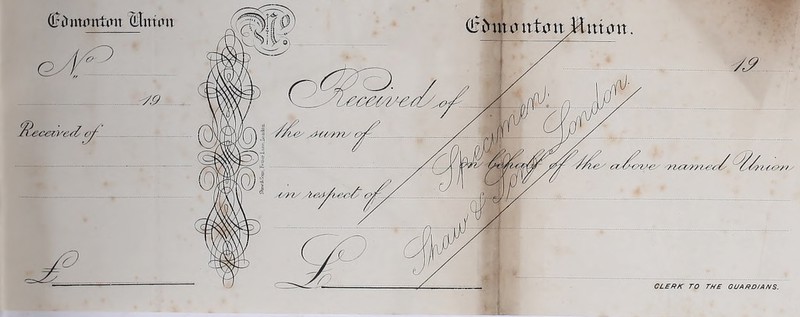 Edmonton Union
No
19
Received of
£
No
Edmonton Union.
19
Received of
the sum of
on behalf of the above named Union
in respect of
£
CLERK TO THE GUARDIANS.
Specimen.
Shaw & Sons, London.